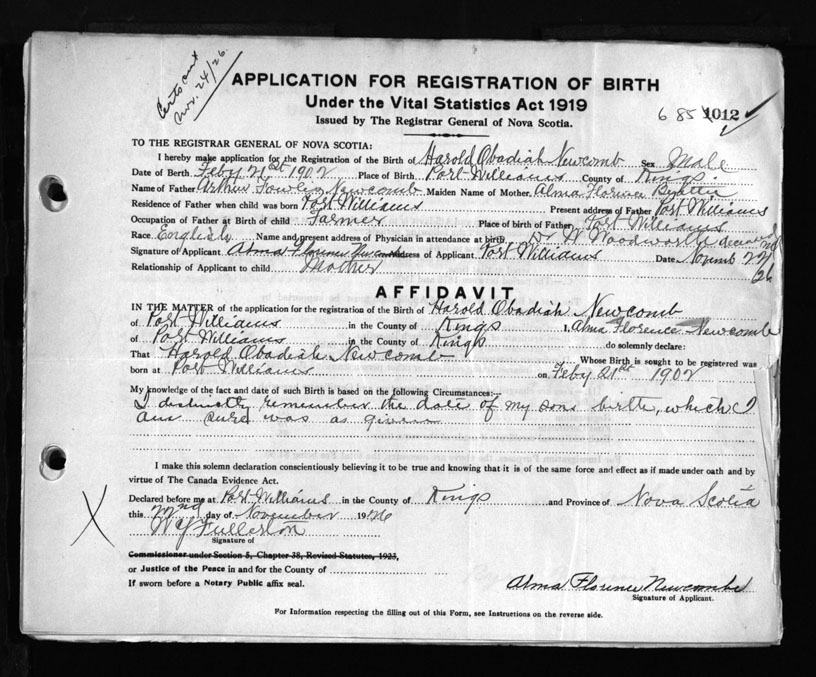 Certs out
Nov. 24/26.
APPLICATION FOR REGISTRATION OF BIRTH
Under the Vital Statistics Act 1919
Issued by The Registrar General of Nova Scotia.
685 1012
TO THE REGISTRAR GENERAL OF NOVA SCOTIA:
I hereby make application for the Registration of the Birth of Harold Obadiah Newcomb Sex Male
Date of Birth Feby 21st 1902 Place of Birth Port Williams County of Kings
Name of Father Arthur Newcomb Maiden Name of Mother Alma Florence
Residence of Father when child was born Port Williams Present address of Father Port Williams
Occupation of Father at Birth of child Farmer Place of birth of Father Port Williams
Race English Name and present address of Physician in attendance at birth Dr W Woodworth deceased
Signature of Applicant Alma Florence Newcombe Address of Applicant Port Williams Date Novemb 22nd
26
Relationship of Applicant to child Mother
AFFIDAVIT
IN THE MATTER of the application for the registration of the Birth of Harold Obadiah Newcomb
of Port Williams in the County of Kings I, Alma Florence Newcomb
of Port Williams in the County of Kings do solemnly declare:
That Harold Obadiah Newcomb Whose Birth is sought to be registered was
born at Port Williams on Feby 21st 1902
My knowledge of the fact and date of such Birth is based on the following Circumstances:—
I distinctly remember the date of my sons birth, which I
am sure was as given
I make this solemn declaration conscientiously believing it to be true and knowing that it is of the same force and effect as if made under oath and by
virtue of The Canada Evidence Act.
Declared before me at Port Williams in the County of Kings and Province of Nova Scotia
this 22nd day of November 1926
W Y Fullerton
Signature of
Commissioner under Section 5, Chapter 38, Revised Statutes, 1923,
or Justice of the Peace in and for the County of
If sworn before a Notary Public affix seal.
Alma Florence Newcombe
Signature of Applicant.
For Information respecting the filling out of this Form, see Instructions on the reverse side.